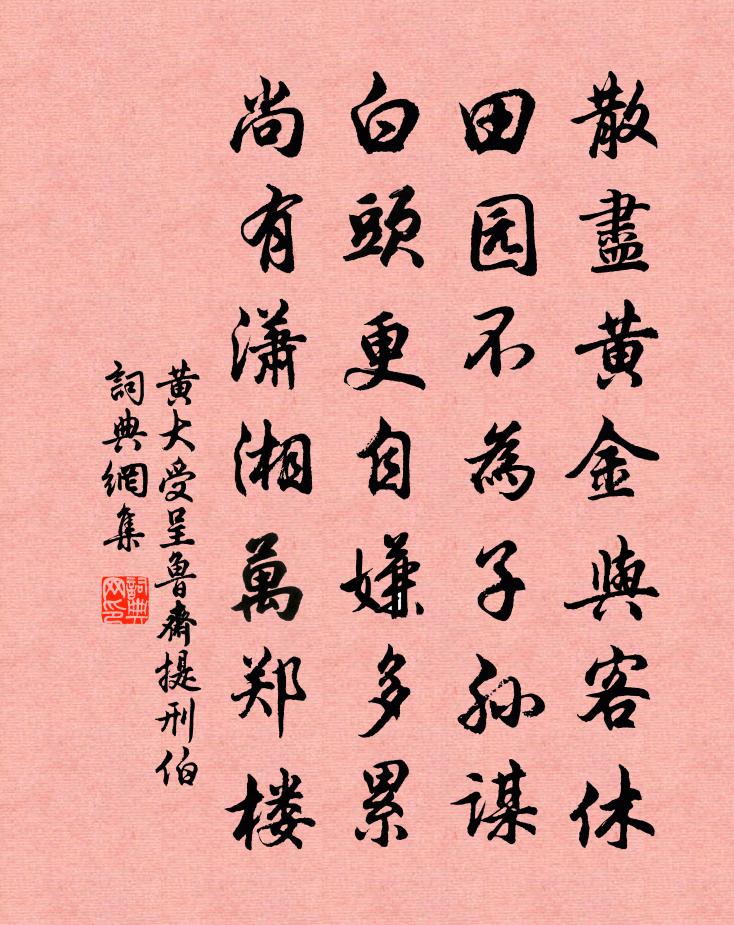 散盡黄金與客休
田园不為子孙謀
白頭更自嫌多累
尚有瀟湘萬郑楼
黄大受呈魯齋提刑伯
詞典網集
詞典網印